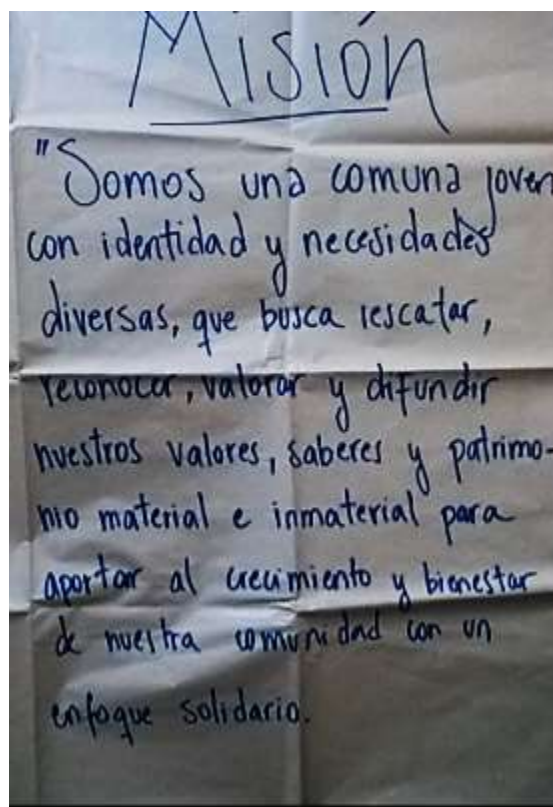 Misión
"Somos una comuna joven
con identidad y necesidades
diversas, que busca rescatar,
reconocer, valorar y difundir
nuestros valores, saberes y patrimo-
nio material e inmaterial para
aportar al crecimiento y bienestar
de nuestra comunidad con un
enfoque solidario.